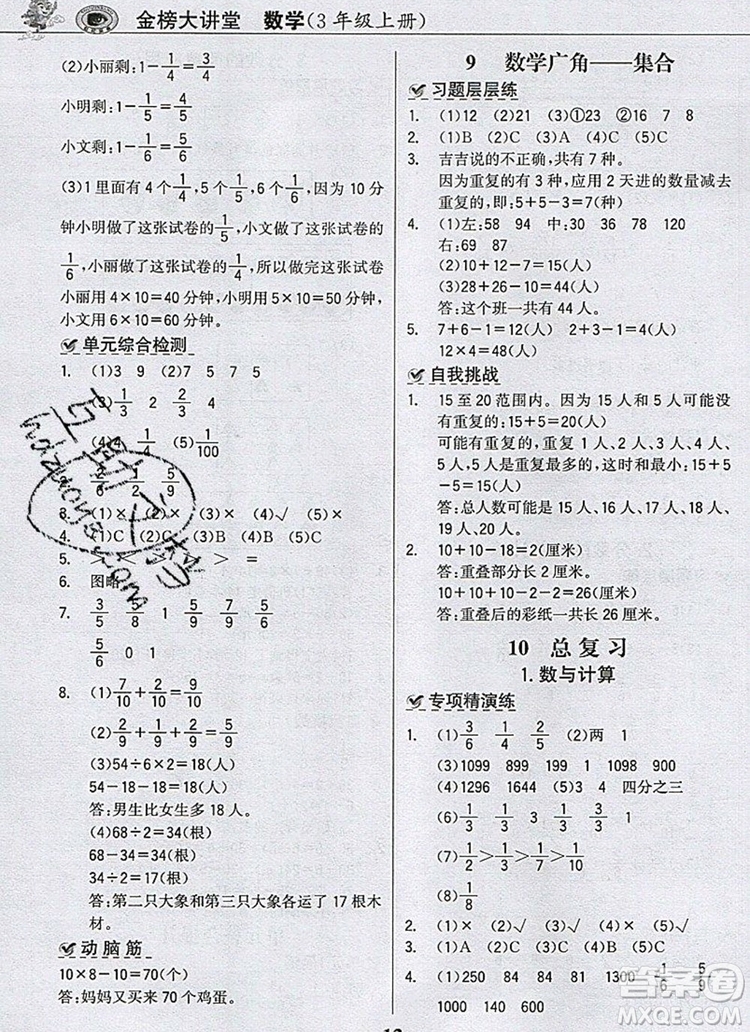 金榜大讲堂 数学(3年级上册)
(2)小丽剩:1-1/4=3/4
小明剩:1-1/5=4/5
小文剩:1-1/6=5/6
(3)1里面有4个1/4,5个1/5,6个1/6,因为10分
钟小明做了这张试卷的1/5,小文做了这张试卷的
1/6,小丽做了这张试卷的1/4,所以做完这张试卷
小丽用4×10=40分钟,小明用5×10=50分钟,
小文用6×10=60分钟。
单元综合检测
1. (1)3 9 (2)7 5 7 5
(3)1/3 2 2/4 4
(4)4 1/4 (5)1/100
3/6 1/2 5/9
(1)× (2)× (3)× (4)√ (5)×
4. (1)C (2)B (3)C (4)B (5)C
5. > < > > > =
6. 图略
7. 3/5 5/8 1 5/9 2/5
5/6 0 1
8. (1)7/10+2/10=9/10
(2)2/9+1/9+2/9=5/9
(3)54÷6×2=18(人)
54-18-18=18(人)
答:男生比女生多18人。
(4)68÷2=34(根)
68-34=34(根)
34÷2=17(根)
答:第二只大象和第三只大象各运了17根木
材。
动脑筋
10×8-10=70(个)
答:妈妈又买来70个鸡蛋。
9 数学广角——集合
习题层层练
1. (1)12 (2)21 (3)①23 ②16 7 8
2. (1)B (2)C (3)A (4)C (5)C
3. 吉吉说的不正确,共有7种。
因为重复的有3种,应用2天进的数量减去
重复的,即:5+5-3=7(种)
4. (1)左:58 94 中:30 36 78 120
右:69 87
(2)10+12-7=15(人)
(3)28+26-10-2=42(人)
答:这个班一共有44人。
5. 7+6-1=12(人)
12×4=48(人)
自我挑战
1. 15至20范围内。因为15人和5人可能没
有重复的:15+5=20(人)
可能有重复的,重复1人、2人、3人、4
人、5人,5人都是重复的,这时最少:15+
5-5=15(人)
答:总人数可能是15人、16人、17人、18人、
19人、20人。
2. 10+10-18=2(厘米)
答:重叠部分长2厘米。
10+10+10-2-2=26(厘米)
答:重叠后的彩纸一共长26厘米。
10 总复习
1.数与计算
专项精演练
1. (1)3/6 3/4 5/8 2/5 (2)两 1
(3)1099 899 1 109 1000 998
(4)1296 1644 (5)3 4 四分之三
(6)1/3 7/12 5/12
(7)1/2>1/3>1/7>1/8
(8)1/8
2. (1)× (2)√ (3)× (4)√ (5)×
3. (1)A (2)C (3)B (4)C (5)C
4. (1)250 84 84 81 1000 1/6 5/9
1000 140 600